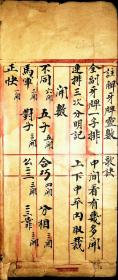 註解牙牌靈數 歌訣
全副牙牌一字排 中間看有幾多開
連排三次分明記 上下中平內取裁
開數
不同六開 五子五開 合巧四開 分相三開
馬軍三開 對子三開
正快一開